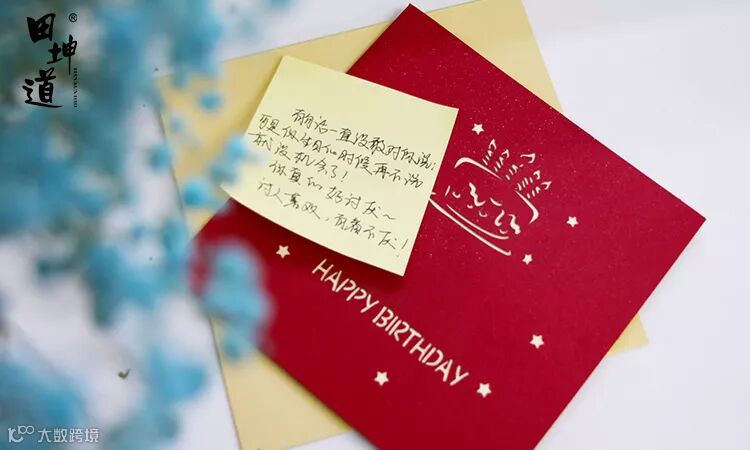 田坤道®
有句话一直没敢对你说：
可是你生日的时候再不说
就没机会了！
你真的好讨厌~
讨人喜欢，百看不厌！
HAPPY BIRTHDAY
大数跨境